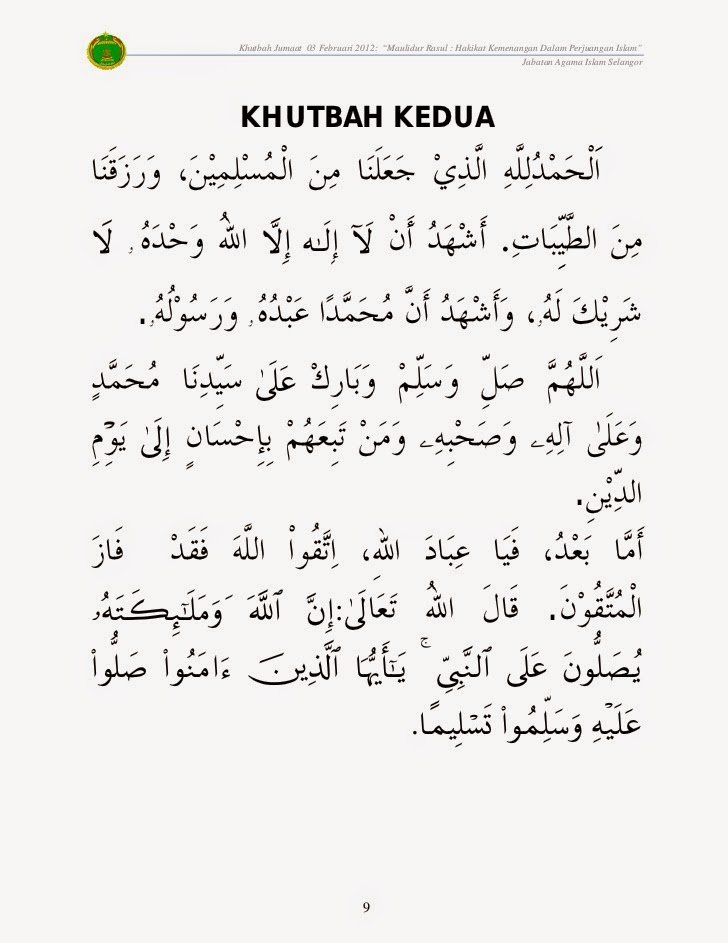 Khutbah Jumaat 03 Februari 2012: “Maulidur Rasul : Hakikat Kemenangan Dalam Perjuangan Islam”
Jabatan Agama Islam Selangor
KHUTBAH KEDUA
اَلْحَمْدُلِلَّهِ الَّذِيْ جَعَلَنَا مِنَ الْمُسْلِمِيْنَ، وَرَزَقَنَا
مِنَ الطَّيِّبَاتِ. أَشْهَدُ أَنْ لَآ إِلَـٰه إِلَّا اللهُ وَحْدَهُۥ لَا
شَرِيْكَ لَهُۥ، وَأَشْهَدُ أَنَّ مُحَمَّدًا عَبْدُهُۥ وَرَسُوْلُهُۥ.
اَللَّهُمَّ صَلِّ وَسَلِّمْ وَبَارِكْ عَلَىٰ سَيِّدِنَا مُحَمَّدٍ
وَعَلَىٰ آلِهِۦ وَصَحْبِهِۦ وَمَنْ تَبِعَهُمْ بِإِحْسَانٍ إِلَىٰ يَوْمِ
الدِّيْنِ.
أَمَّا بَعْدُ، فَيَا عِبَادَ اللهِ، اِتَّقُواْ اللَّهَ فَقَدْ فَازَ
الْمُتَّقُوْنَ. قَالَ اللهُ تَعَالَىٰ:إِنَّ ٱللَّهَ وَمَلَـٰٓئِكَتَهُۥ
يُصَلُّونَ عَلَى ٱلنَّبِىِّ ۚ يَـٰٓأَيُّهَا ٱلَّذِينَ ءَامَنُواْ صَلُّواْ
عَلَيْهِ وَسَلِّمُواْ تَسْلِيمًا.
9